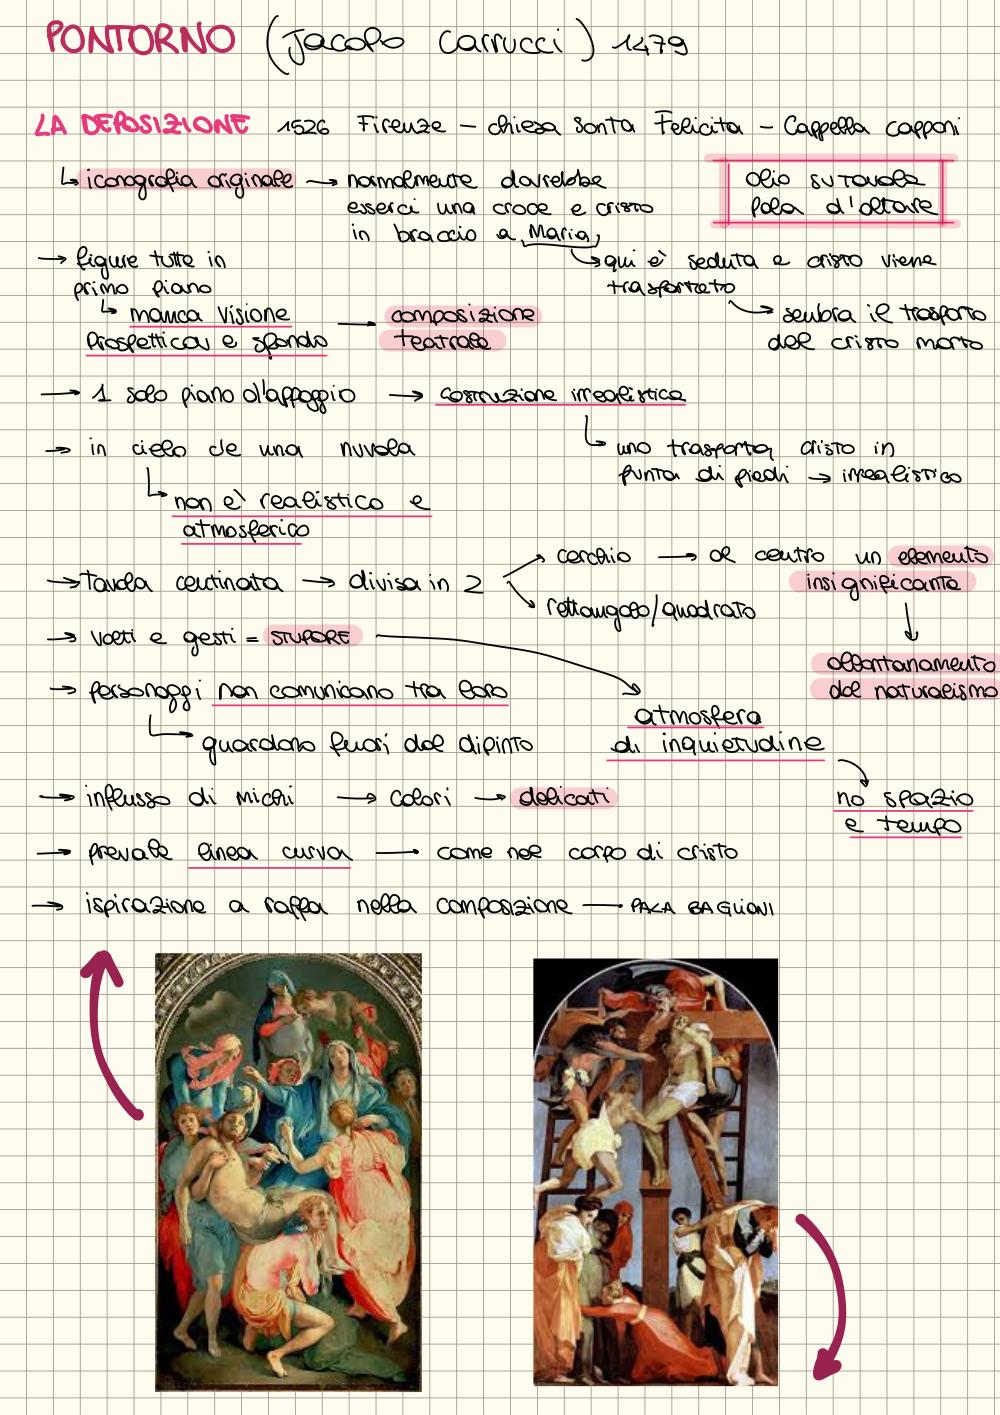 PONTORNO (Jacopo Carrucci) 1479
LA DEPOSIZIONE 1526 Firenze - chiesa Santa Felicita - Cappella Capponi
iconografia originale → normalmente dovrebbe
esserci una croce e cristo
in braccio a Maria,
olio su tavola
pala d'altare
→ figure tutte in
primo piano
qui è seduta e cristo viene
trasportato
manca visione
prospettica e sfondo → composizione
teatrale
sembra il trasporto
del cristo morto
→ 1 solo piano d'appoggio → costruzione irrealistica
→ in cielo c'è una nuvola
uno trasporta cristo in
punta di piedi → irrealistico
non è realistico e
atmosferico
→ tavola centinata → divisa in 2
cerchio → al centro un elemento
insignificante
rettangolo/quadrato
→ volti e gesti = STUPORE
allontanamento
dal naturalismo
→ personaggi non comunicano tra loro
atmosfera
di inquietudine
guardano fuori dal dipinto
→ influsso di Michi → colori → delicati
no spazio
e tempo
→ prevale linea curva → come nel corpo di cristo
→ ispirazione a raffa nella composizione → PALA BAGLIONI